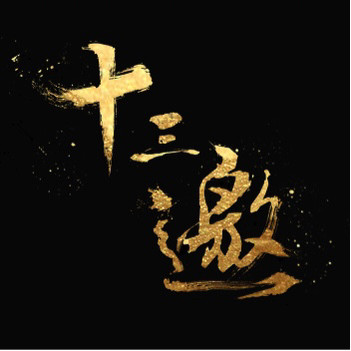 十三邀